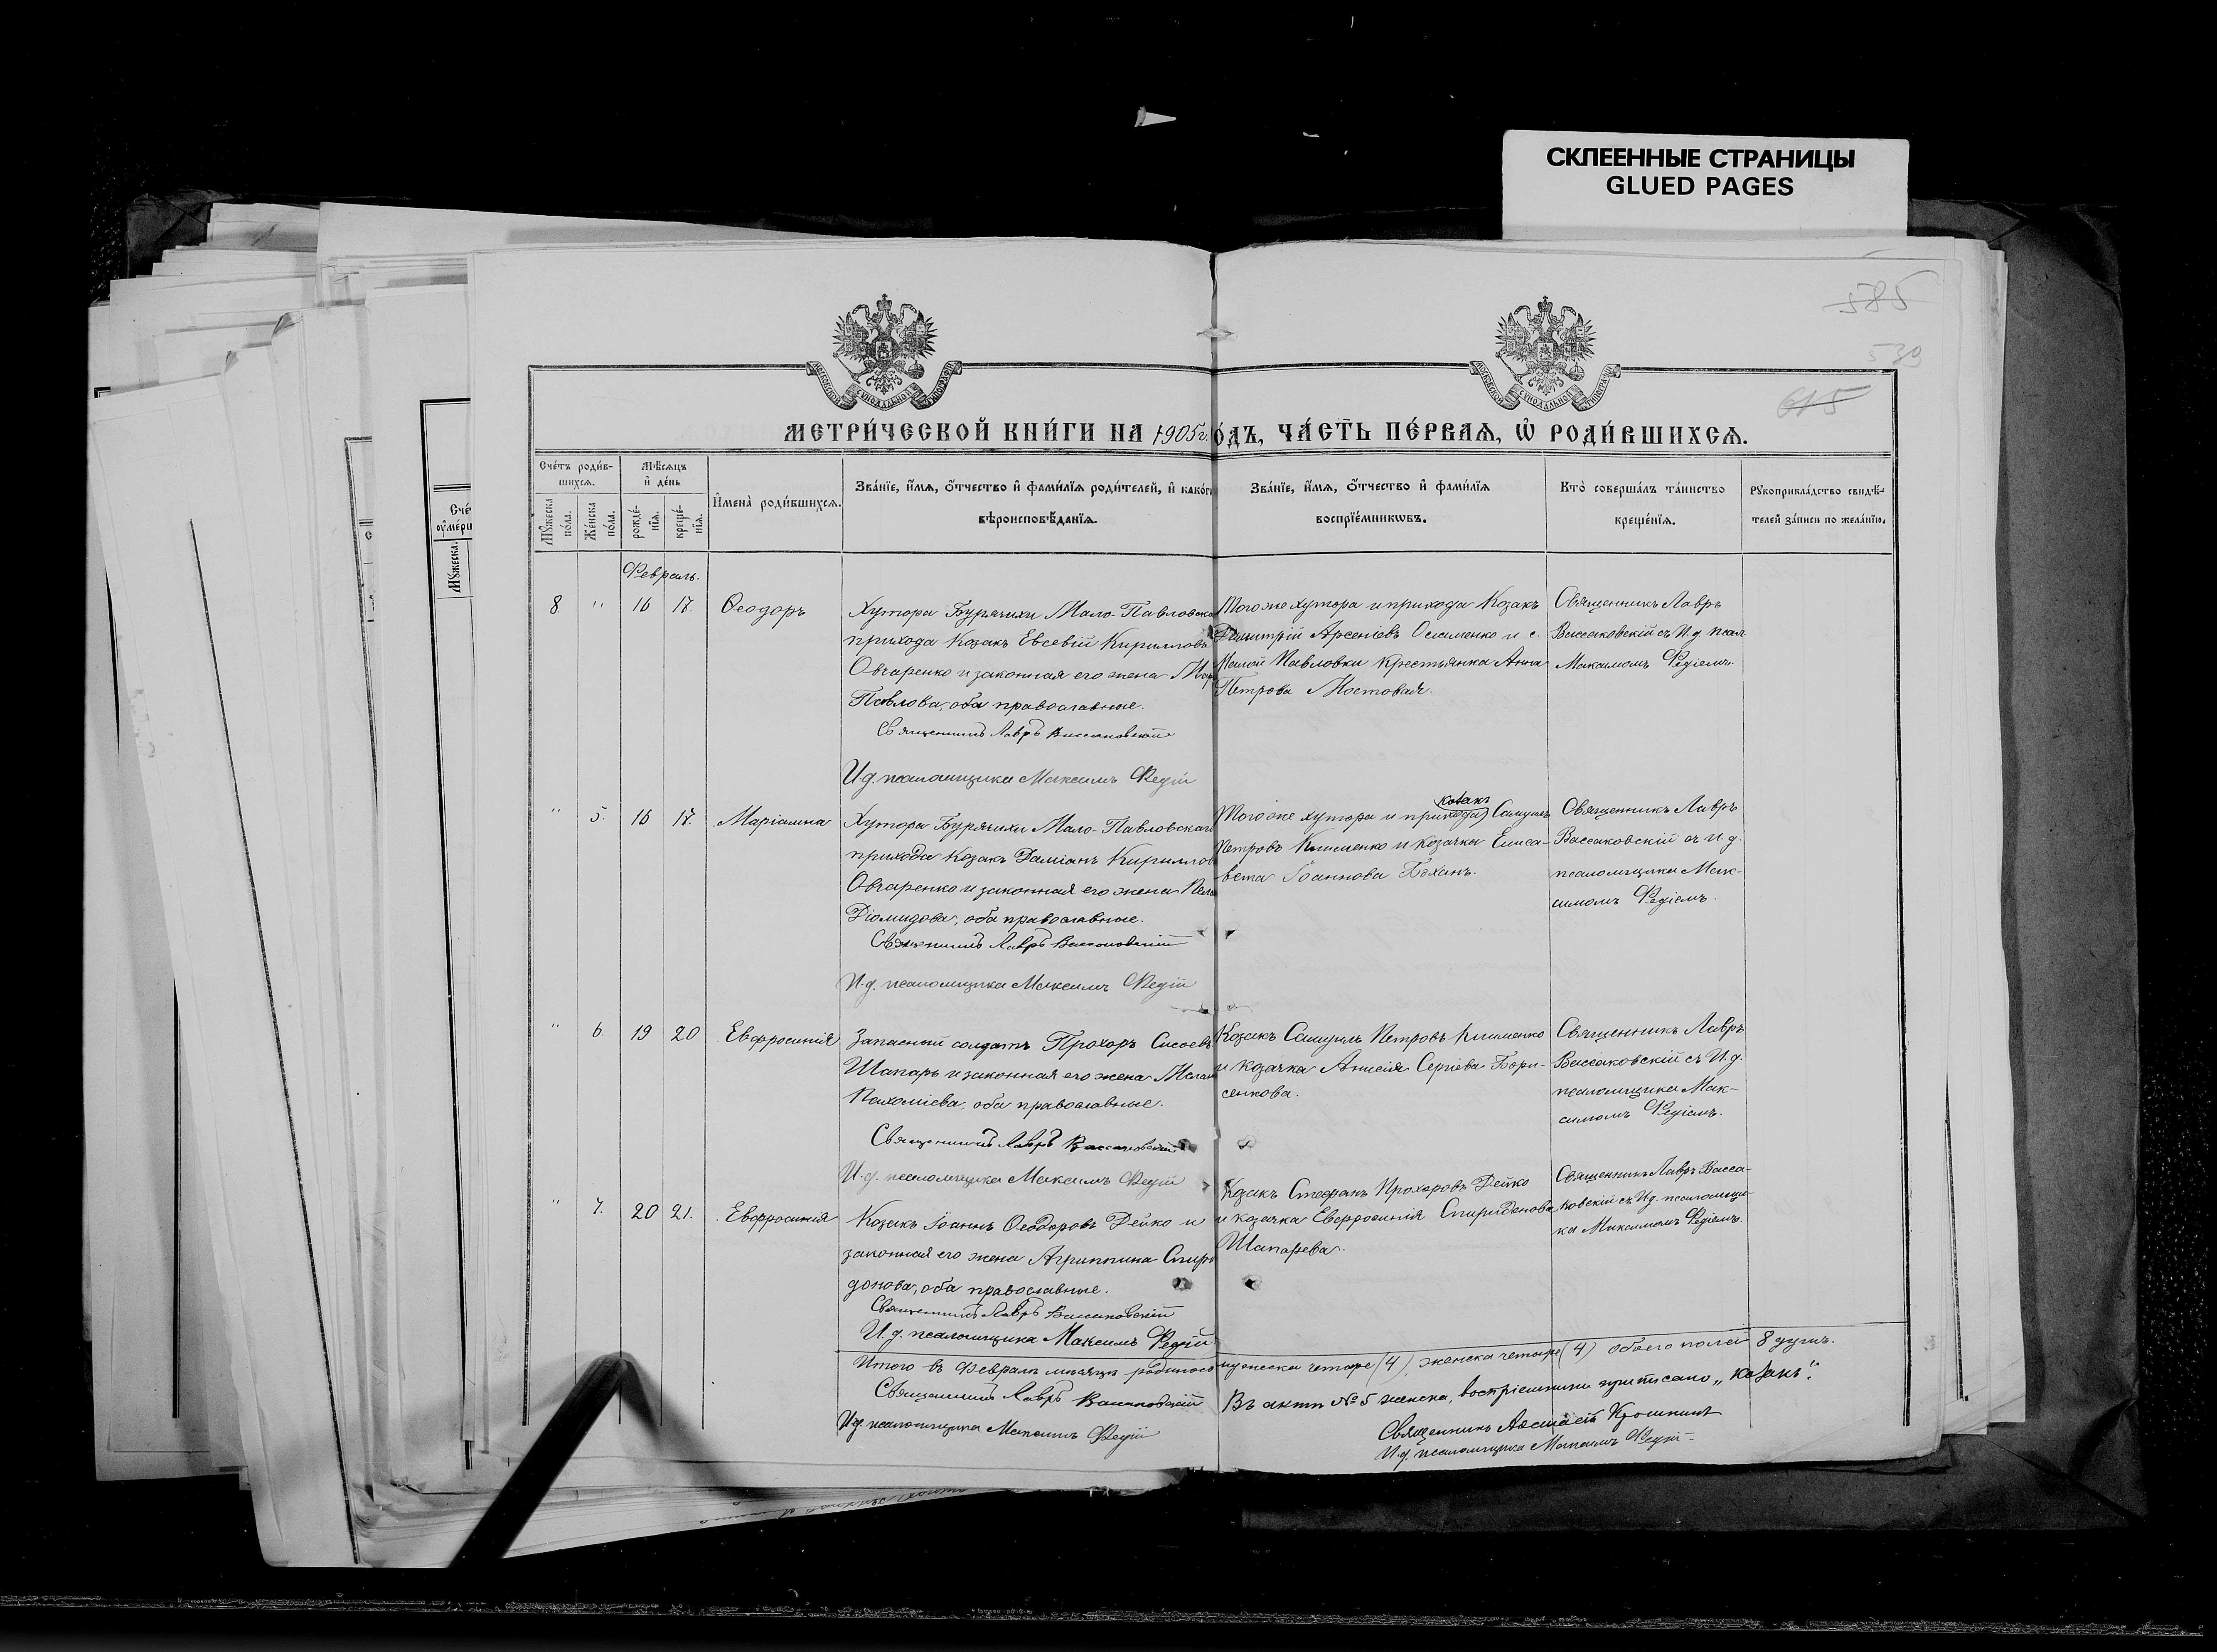 СКЛЕЕННЫЕ СТРАНИЦЫ
GLUED PAGES
585
539
615
МЕТРИ́ЧЕСКОЙ КНИ́ГИ НА 1905 г. О́ДЪ, ЧА́СТЬ ПЕ́РВАѦ, Ѡ РОДИ́ВШИХСѦ.
Сче́тъ роди́в-
шихсѧ.
Мѣсѧцъ
и де́нь
Мꙋжеска по́ла.
Же́нска по́ла.
рожде́-
нїѧ.
креще́-
нїѧ.
Имена̀ роди́вшихсѧ.
Зва́нїе, и́мѧ, ѻ҆́тчество и фами́лїѧ роди́телей, и како́г
вѣроисповѣ́данїѧ.
Зва́нїе, и́мѧ, ѻ҆́тчество и фами́лїѧ
воспрїе́мникѡвъ.
Кто̀ соверша́лъ та́инство
креще́нїѧ.
Рꙋкоприкла́дство свидѣ́-
телей за́писи по жела́нїю.
Февраль.
8 " 16 17. Ѳеодоръ
Хутора Бурячихи Мало-Павловска
прихода Козакъ Евсевій Кирилловъ
Овчаренко и законная его жена Мар
Павлова, оба православные.
Священникъ Лавръ Вассаковскій
И.д. псаломщика Максимъ Федій
Того же хутора и прихода Козакъ
Димитрій Арсеніевъ Осименко и с.
Малой Павловки крестьянка Анна
Петрова Мостовая.
Священникъ Лавръ
Вассаковскій съ И.д. псал.
Максимомъ Федіемъ.
" 5. 16 17. Маріамна
Хутора Бурячихи Мало-Павловскаг
прихода Козакъ Даміанъ Кириллов
Овчаренко и законная его жена Пела
Діомидова, оба православные.
Священникъ Лавръ Вассаковскій
И.д. псаломщика Максимъ Федій
козакъ
Того же хутора и прихода Самуилъ
Петровъ Клименко и козачка Елиса-
вета Іоаннова Боханъ.
Священникъ Лавръ
Вассаковскій съ И.д.
псаломщика Мак-
симомъ Федіемъ.
" 6. 19 20 Евфросинія
Запасный солдатъ Прохоръ Сисоевъ
Шапарь и законная его жена Мелан
Пахоміева, оба православные.
Священникъ Лавръ Вассаковскій
И.д. псаломщика Максимъ Федій
Козакъ Самуилъ Петровъ Клименко
и козачка Анисія Сергіева Бори-
сенкова.
Священникъ Лавръ
Вассаковскій съ И.д.
псаломщика Мак-
симомъ Федіемъ.
" 7. 20 21. Евфросинія
Козакъ Іоаннъ Ѳеодоровъ Дейко и
законная его жена Агриппина Спири
донова, оба православные.
Священникъ Лавръ Вассаковскій
И.д. псаломщика Максимъ Федій
Козакъ Стефанъ Прохоровъ Дейко
и козачка Евфросинія Спиридонова
Шапарева.
Священникъ Лавръ Васса-
ковскій съ И.д. псаломщи-
ка Максимомъ Федіемъ.
Итого въ Февралѣ мѣсяцѣ родилось мужеска четыре (4), женска четыре (4) обоего пола 8 душъ.
Священникъ Лавръ Вассаковскій
И.д. псаломщика Максимъ Федій
Въ актѣ № 5 женска, воспріемники приписано „козакъ".
Священникъ
И.д. псаломщика Максимъ Федій